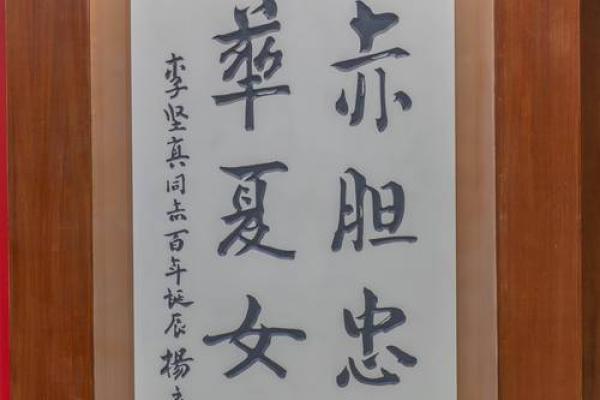 赤胆忠
華夏女
李坚真同志百年诞辰 楊